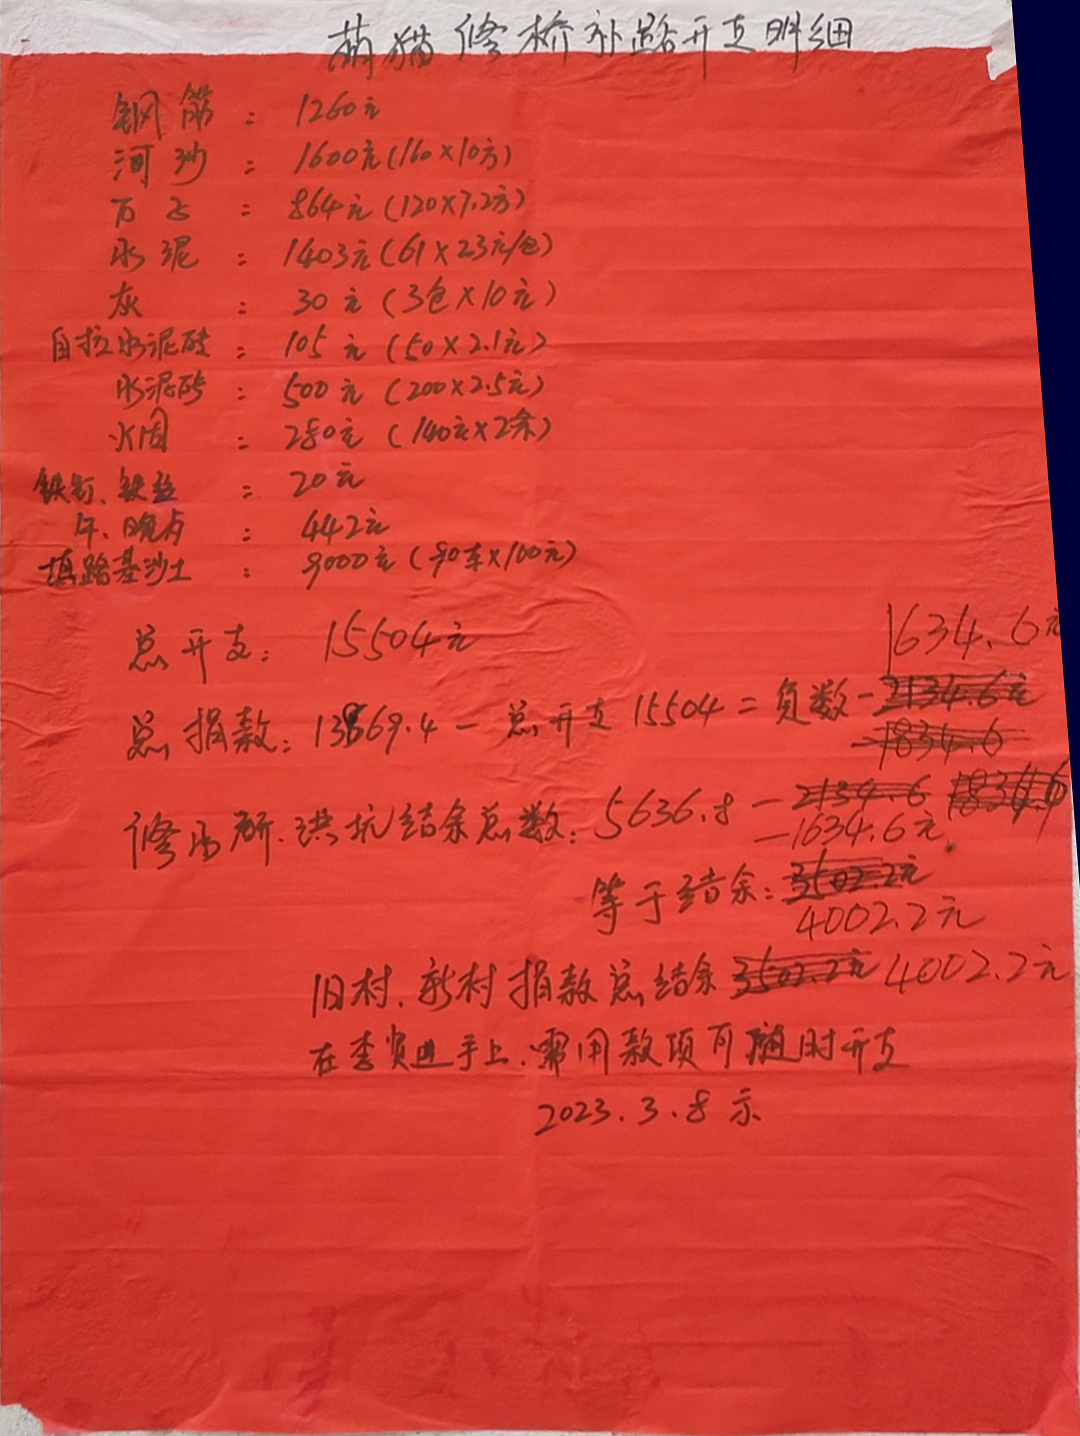 萌猫修桥补路开支明细
钢筋：1260元
河沙：1600元(160×10方)
石子：864元(120×7.2方)
水泥：1403元(61×23元/包)
灰：30元(3包×10元)
自拉水泥砖：105元(50×2.1元)
水泥砖：500元(200×2.5元)
水固：280元(140元×2条)
铁钉、铁丝：20元
午、晚点：442元
填路基沙土：9000元(90车×100元)
总开支：15504元
1634.6元
总捐款：13869.4－总开支15504＝负数－2134.6元
－1834.6
修水所、洪坑结余总数：5636.8－2134.6 1834.6
－1634.6元
等于结余：3502.2元
4002.2元
旧村、新村捐款总结余3502.2元 4002.2元
在李贤进手上、需用款项可随时开支
2023.3.8示